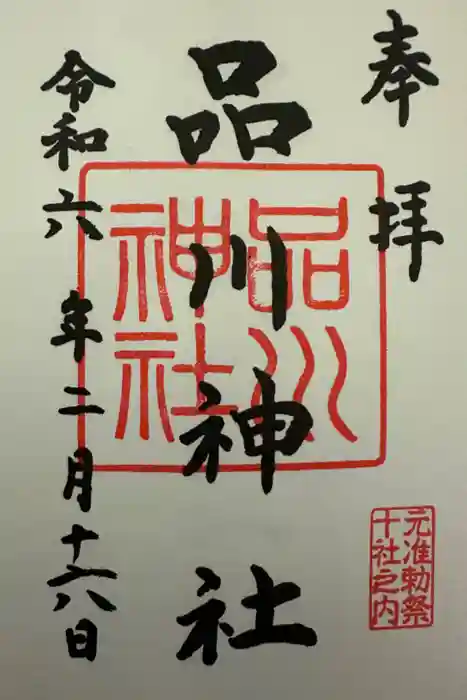 奉拝
品川神社
令和六年二月十八日
品川
神社
元准勅祭
十社之内